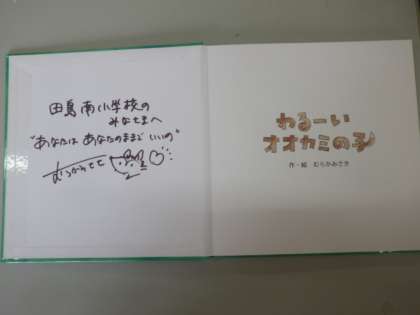 田島南小学校の
みなさまへ
"あなたは あなたのままで いいの"
わるーい
オオカミの子
作・絵 むらかみさき